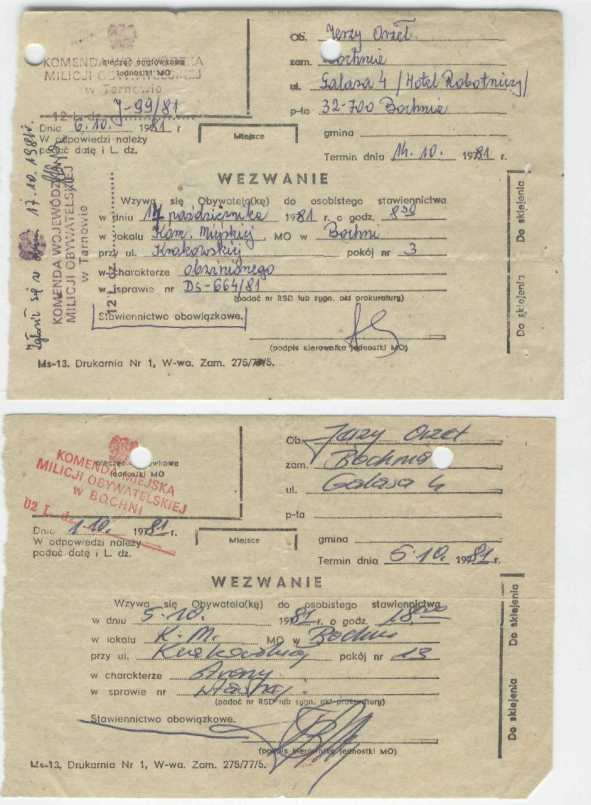 KOMENDA WOJEWÓDZKA
MILICJI OBYWATELSKIEJ
w Tarnowie
pieczęć nagłówkowa
jednostki MO
12 L. dz. J-99/81
Dnia 6.10. 1981 r
W odpowiedzi należy
podać datę i L. dz.
Miejsce
Ob. Jerzy Orzeł
zam. Bochnia
ul. Galasa 4 /Hotel Robotniczy/
p-ta 32-700 Bochnia
gmina
Termin dnia 14.10. 1981 r.
WEZWANIE
Wzywa się Obywatela(kę) do osobistego stawiennictwa
w dniu 14 października 1981 r. o godz. 8 30
w lokalu Kom. Miejskiej MO w Bochni
przy ul. Krakowskiej pokój nr 3
w charakterze obwinionego
w sprawie nr Ds-664/81
(podać nr RSD lub sygn. akt prokuratury)
Stawiennictwo obowiązkowe.
(podpis kierownika jednostki MO)
Ms-13. Drukarnia Nr 1, W-wa. Zam. 275/77/5.
Do sklejenia
Do sklejenia
KOMENDA WOJEWÓDZKA
MILICJI OBYWATELSKIEJ
w Tarnowie
12 L. dz.
Zgłosił się w dniu 17.10.1981r.
KOMENDA MIEJSKA
MILICJI OBYWATELSKIEJ
w BOCHNI
pieczęć nagłówkowa
jednostki MO
02 L. dz.
Dnia 1.10. 1981 r.
W odpowiedzi należy
podać datę i L. dz.
Miejsce
Ob. Jerzy Orzeł
zam. Bochnia
ul. Galasa 4
p-ta
gmina
Termin dnia 5.10 1981 r.
WEZWANIE
Wzywa się Obywatela(kę) do osobistego stawiennictwa
w dniu 5.10. 1981 r. o godz. 18.00
w lokalu K.M. MO w Bochni
przy ul. Krakowskiej pokój nr 13
w charakterze strony
w sprawie nr własnej
(podać nr RSD lub sygn. akt prokuratury)
Stawiennictwo obowiązkowe.
(podpis kierownika jednostki MO)
Ms-13. Drukarnia Nr 1, W-wa. Zam. 275/77/5.
Do sklejenia
Do sklejenia